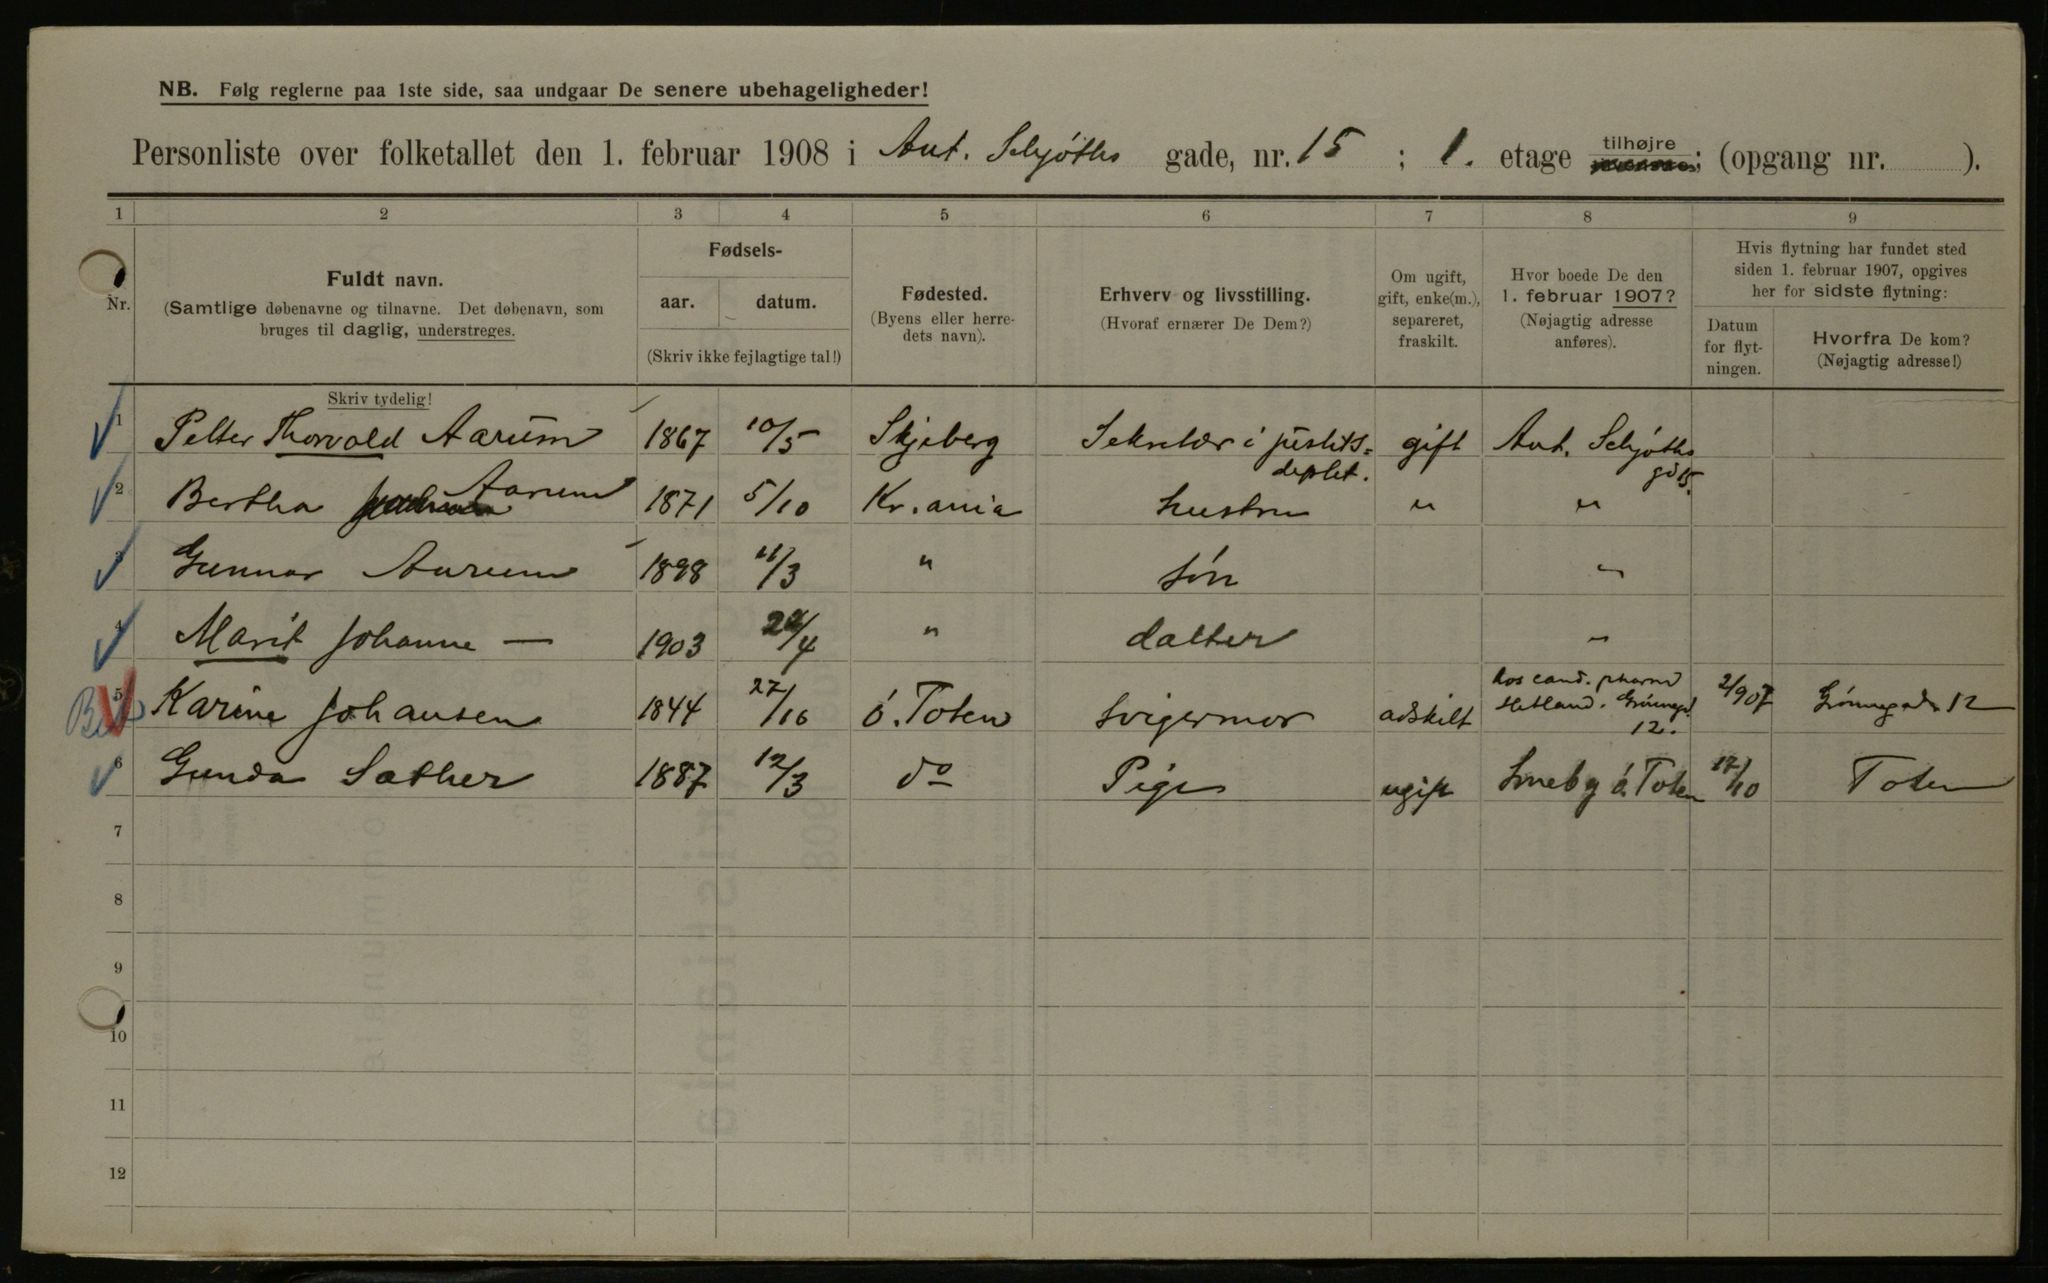 NB. Følg reglerne paa 1ste side, saa undgaar De senere ubehageligheder!
Personliste over folketallet den 1. februar 1908 i Ant. Schjøths gade, nr. 15 ; 1. etage tilhøjre ; (opgang nr. ).
1 2 3 4 5 6 7 8 9
Nr.
Fuldt navn.
(Samtlige døbenavne og tilnavne. Det døbenavn, som
bruges til daglig, understreges.
Skriv tydelig!
Fødsels-
aar. datum.
(Skriv ikke fejlagtige tal!)
Fødested.
(Byens eller herre-
dets navn).
Erhverv og livsstilling.
(Hvoraf ernærer De Dem?)
Om ugift,
gift, enke(m.),
separeret,
fraskilt.
Hvor boede De den
1. februar 1907?
(Nøjagtig adresse
anføres).
Hvis flytning har fundet sted
siden 1. februar 1907, opgives
her for sidste flytning:
Datum
for flyt-
ningen.
Hvorfra De kom?
(Nøjagtig adresse!)
1 Petter Thorvald Aarum 1867 10/5 Skjeberg Sekretær i justits= deptet. gift Ant. Schjøths gd 15.
2 Bertha Aarum 1871 5/10 Kr.ania hustru " "
3 Gunnar Aarum 1898 11/3 " søn "
4 Marit Johanne — 1903 /4 " datter "
5 Karine Johansen 1844 27/10 ø. Toten svigermor adskilt hos cand. pharm Hetland. Grønnegd. 12. 2/907 Grønnegade 12
6 Gunda Sæther 1887 12/3 do Pige ugift Smeby ø. Toten 17/10 Toten
7
8
9
10
11
12